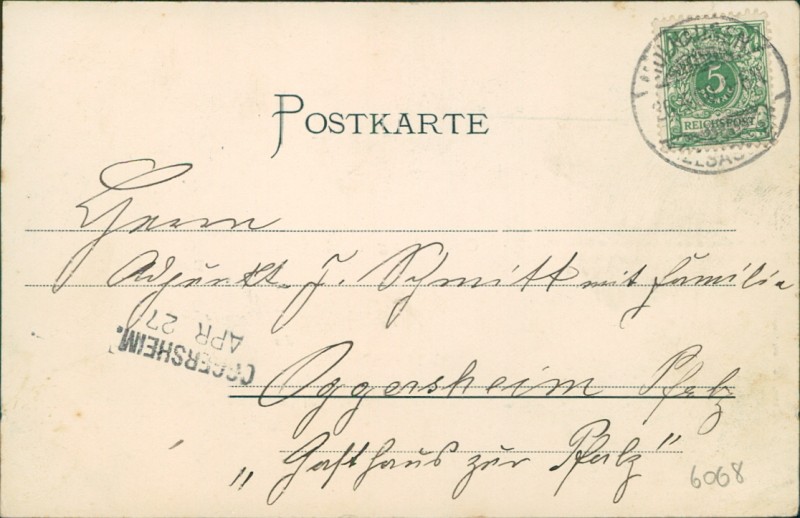 POSTKARTE
5
REICHSPOST
Herrn
Adjunkt J. Schmitt mit Familie
OGGERSHEIM.
APR 27
Oggersheim Pfalz
„Gasthaus zur Pfalz"
6068